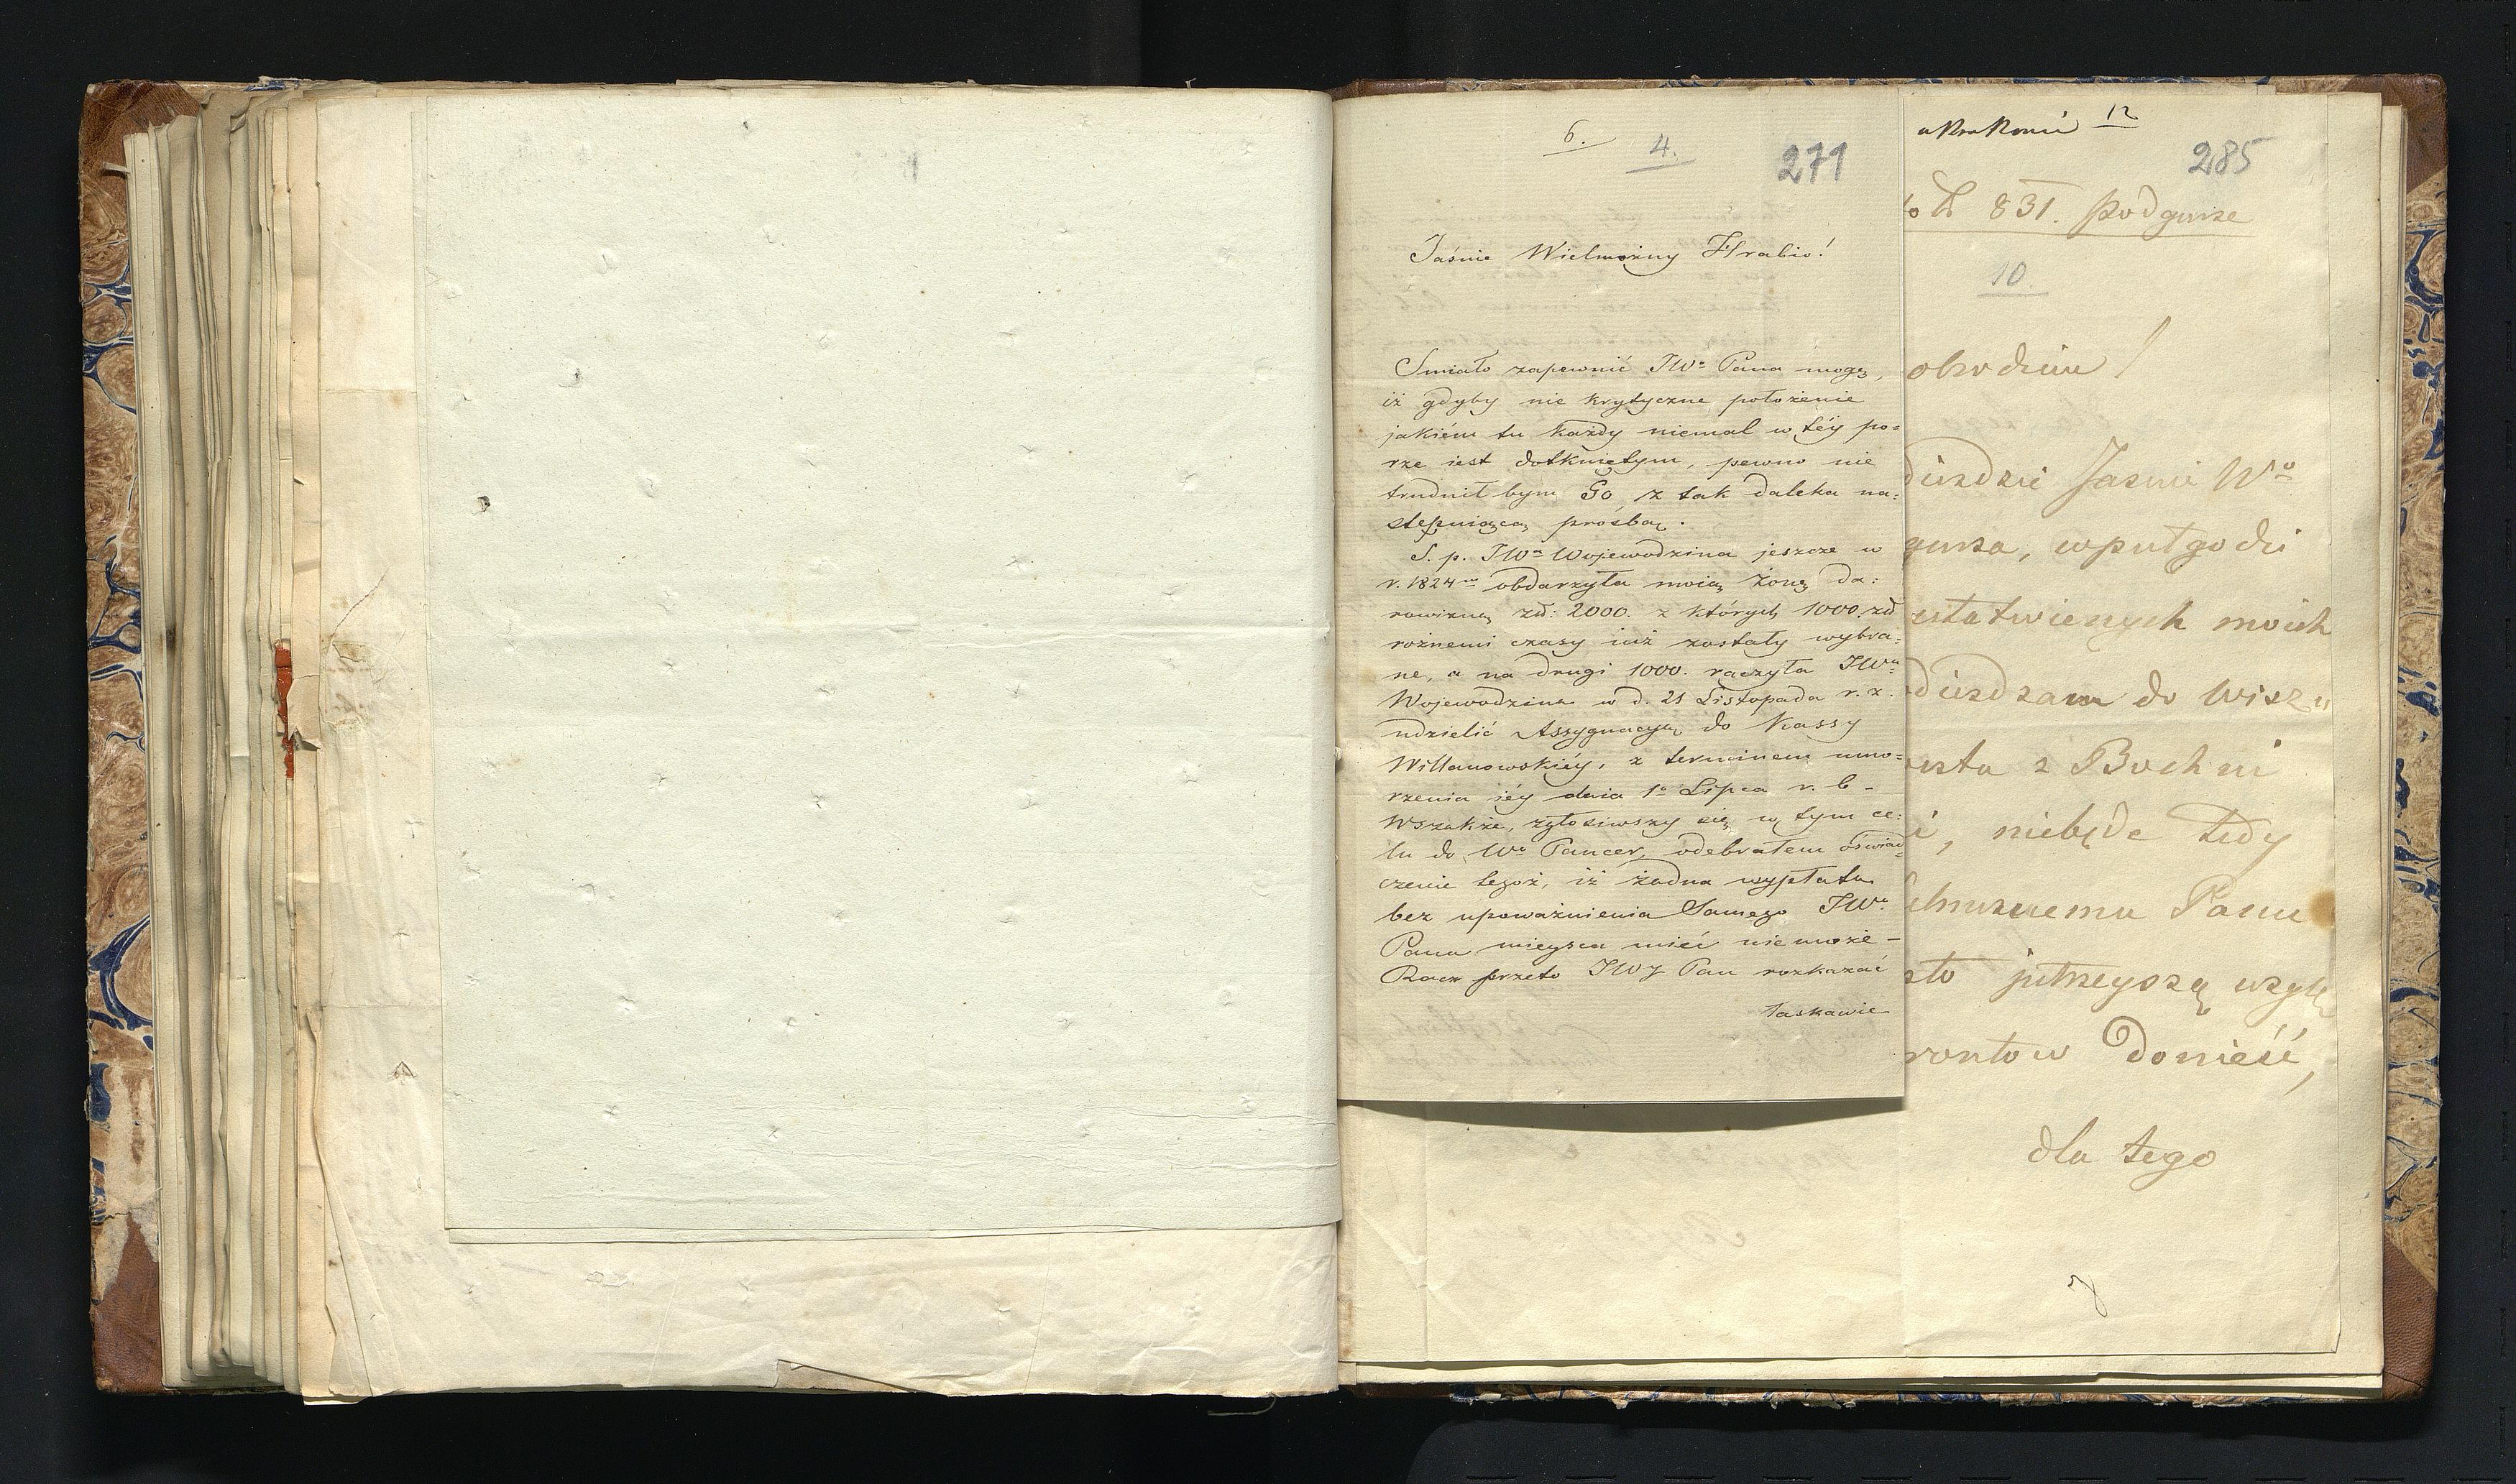 6.
4.
271
Jaśnie Wielmożny Hrabio!
Smiało zapewnić JWo Pana mogę,
iż gdyby nie krytyczne położenie
jakiém tu każdy niemal w téy po=
rze iest dotkniętym, pewno nie
trudnił bym Go z tak daleka na=
stępuiącą prośbą.
S. p. JWa Wojewodzina jeszcze w
r. 1824m obdarzyła moią żonę da=
rowizną zł: 2000. z których 1000. zł
rożnemi czasy iuż zostały wybra=
ne, a na drugi 1000. raczyła JWa
Wojewodzina w d. 21 Listopada r. z.
udzielić Assygnacyą do Kassy
Willanowskiéy, z terminem umo=
rzenia iéy dnia 1o Lipca r. b -
Wszakże, zgłosiwszy się w tym ce=
lu do Wo Pancer, odebrałem oświad=
czenie tegoż, iż żadna wypłata
bez upoważnienia Samego JWo
Pana mieysca mieć nie może -
Racz przeto JWy Pan rozkazać
łaskawie
12
285
831. Podgurze
10.
Jasnie Wo
wpuł godzi
moich
do Wisz
z Bochni
niebęde tedy
Panu
jutrzeyszą
donieść,
dla tego